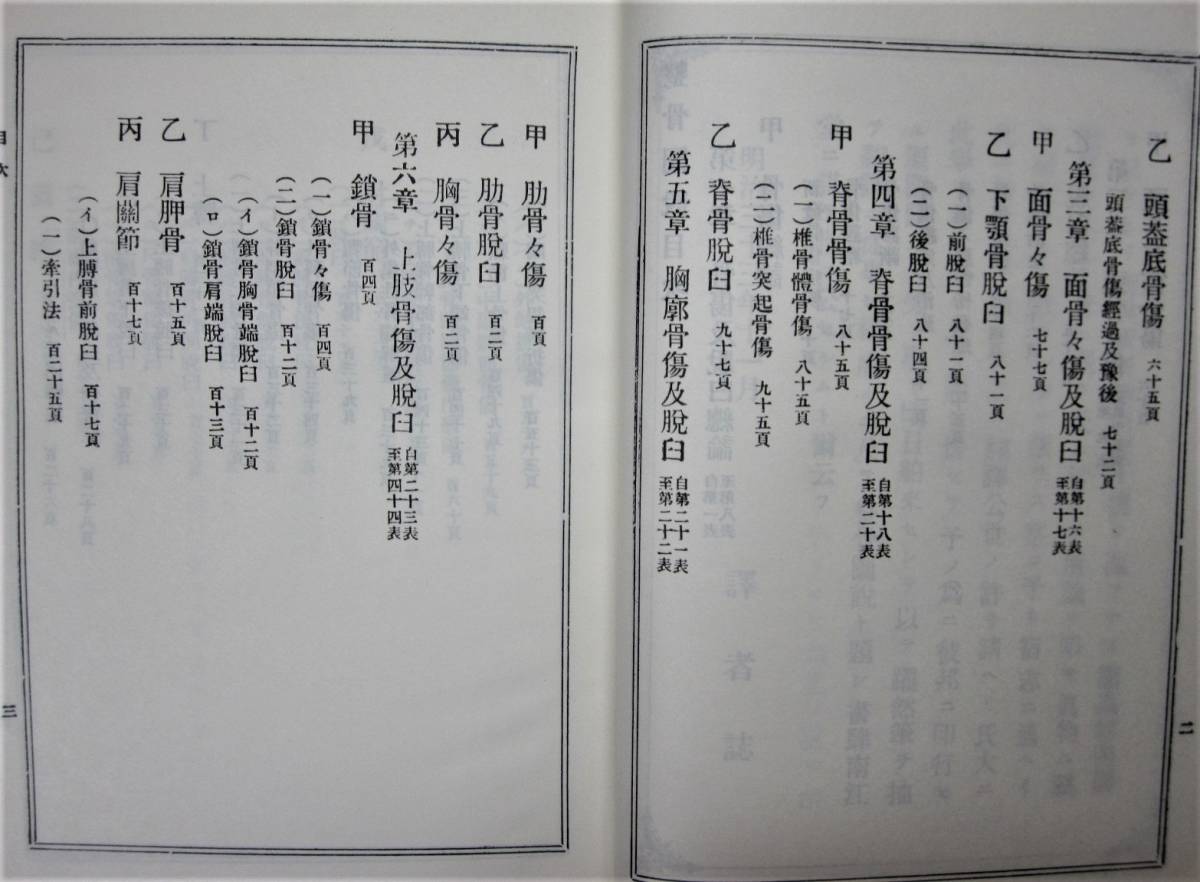 乙 頭蓋底骨傷 六十五頁
頭蓋底骨傷經過及豫後 七十二頁
第三章 面骨々傷及脫臼 自第十六表 至第十七表
甲 面骨々傷 七十七頁
乙 下顎骨脫臼 八十一頁
(一)前脫臼 八十一頁
(二)後脫臼 八十四頁
第四章 脊骨骨傷及脫臼 自第十八表 至第二十表
甲 脊骨骨傷 八十五頁
(一)椎骨體骨傷 八十五頁
(二)椎骨突起骨傷 九十五頁
乙 脊骨脫臼 九十七頁
第五章 胸廓骨傷及脫臼 自第二十一表 至第二十二表
二
甲 肋骨々傷 百頁
乙 肋骨脫臼 百二頁
丙 胸骨々傷 百二頁
第六章 上肢骨傷及脫臼 自第二十三表 至第四十四表
甲 鎖骨 百四頁
(一)鎖骨々傷 百四頁
(二)鎖骨脫臼 百十二頁
(イ)鎖骨胸骨端脫臼 百十二頁
(ロ)鎖骨肩端脫臼 百十三頁
乙 肩胛骨 百十五頁
丙 肩關節 百十七頁
(イ)上膊骨前脫臼 百十七頁
(一)牽引法 百二十五頁
目次
三